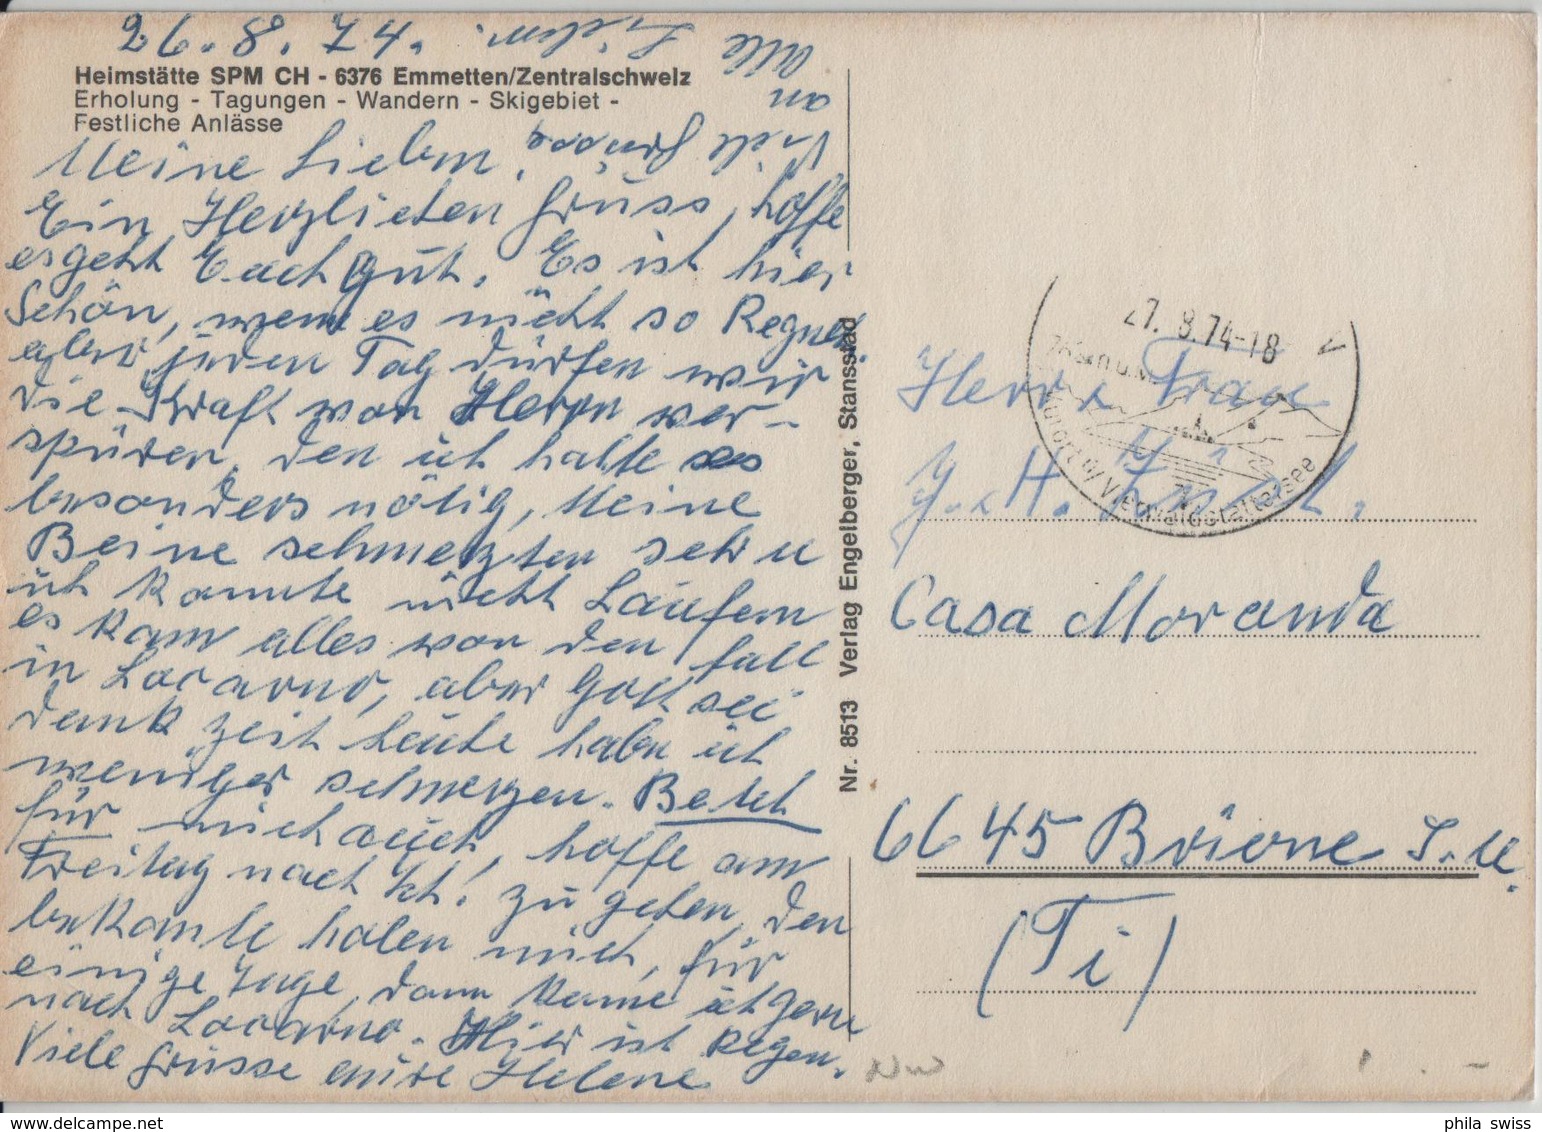 26.8.74.
Heimstätte SPM CH - 6376 Emmetten/Zentralschweiz
Erholung - Tagungen - Wandern - Skigebiet -
Festliche Anlässe
Meine Lieben,
Ein Herzlichen Gruss, hoffe
es geht Euch gut. Es ist hier
Schön, wenn es nicht so Regnet
aber jeden Tag dürfen wir
die Kraft von Herrn ver-
spüren, den ich hatte es
besonders nötig, Meine
Beine schmerzten sehr u
ich konnte nicht Laufen
es kam alles von den fall
in Locarno, aber Gott sei
dank zeit heute habe ich
weniger schmerzen. Betet
für mich auch, hoffe am
Freitag nach zu gehen, den
bekannte holen mich, für
einige Tage, dann komme ich gern
nach Locarno. Hier ist Regen.
Viele grüsse eure Helene
Viele Grüsse
an
Alle Lieben.
Nr. 8513 Verlag Engelberger, Stansstad
27.8.74-18
Vierwaldstättersee
Herr u Frau
Casa Moranda
6645 Brione s. M.
(Ti)
phila swiss